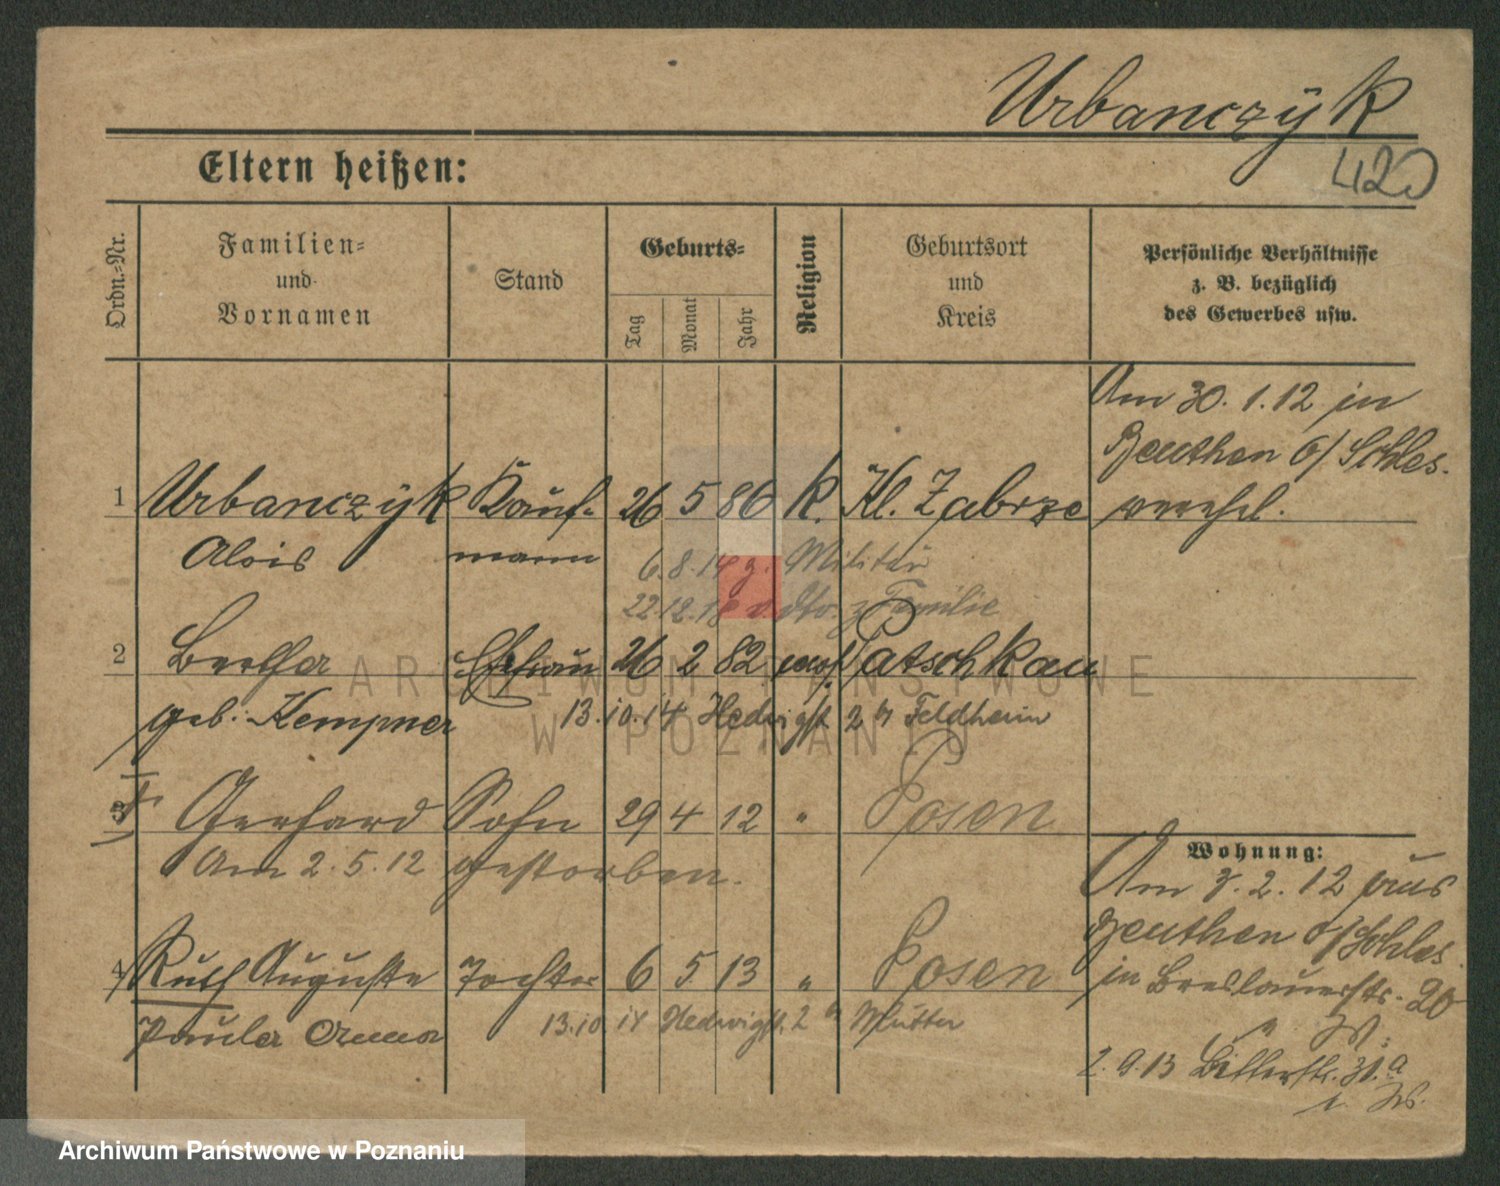 Urbanczÿk
420
Eltern heißen:
Ordn.-Nr.
Familien-
und
Vornamen
Stand
Geburts-
Tag
Monat
Jahr
Religion
Geburtsort
und
Kreis
Persönliche Verhältnisse
z. B. bezüglich
des Gewerbes usw.
Am 30.1.12 in
Beuthen O/Schles.
verehel.
1 Urbanczÿk Kauf- 26 5 86 k. Kl. Zabrze
Alois mann
6.8.14 z. Militär
22.12.18 v. dto. z. Familie
2 Bertha Ehefrau 26 2 82 mos. Patschkau
geb. Kempner
13.10.14 Hedwigst 2 Feldheim
3 Gerhard Sohn 29 4 12 " Posen
Am 2.5.12 gestorben.
Wohnung:
Am 3.2.12 aus
Beuthen O/Schles.
in Breslauerstr. 20
4 Ruth Auguste Tochter 6 5 13 " Posen
Paula Anna
13.10.14 Hedwigst. 2 Mutter
2.9.13 Bitterstr. 31.a